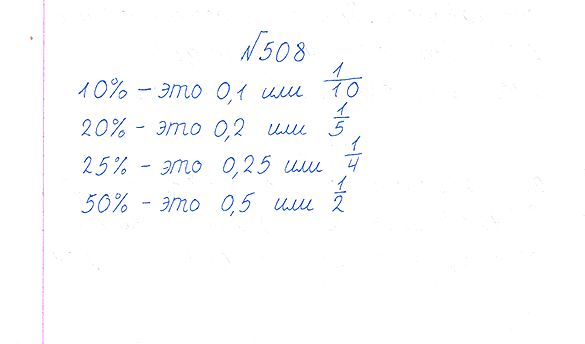 №508
10% – это 0,1 или 1/10
20% – это 0,2 или 1/5
25% – это 0,25 или 1/4
50% – это 0,5 или 1/2